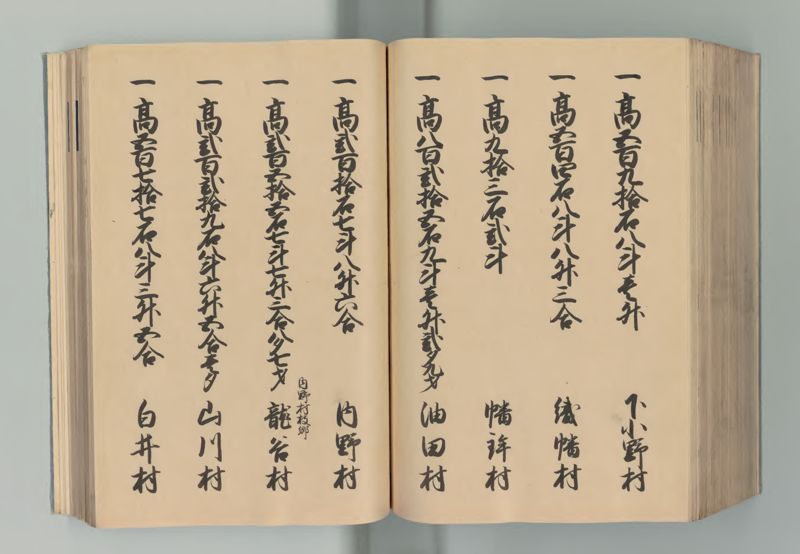 一 高五百九拾石八斗壱升 下小野村
一 高五百四石八斗八升三合 織幡村
一 高九拾三石弐斗 幡鉾村
一 高八百弐拾五石九斗壱升弐夕九才 油田村
一 高弐百拾石七斗八升六合 内野村
内野村枝郷
一 高弐百五拾五石七斗七升三合八夕七才 龍谷村
一 高弐百弐拾九石八斗六升五合壱夕 山川村
一 高五百七拾七石八斗三升五合 白井村